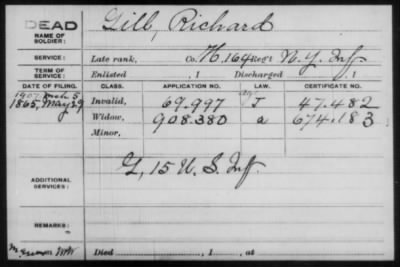 DEAD
NAME OF SOLDIER: Gill, Richard
SERVICE: Late rank, Co. H. 164 Reg't N.Y. Inf
TERM OF SERVICE: Enlisted , 1 Discharged , 1
DATE OF FILING. CLASS. APPLICATION NO. LAW. CERTIFICATE NO.
1865, May 29 Invalid, 69.997 J 47.482
1907 Mch 5 Widow, 908.380 a 674.183
Minor,
ADDITIONAL SERVICES: G, 15 U.S. Inf.
REMARKS:
Died , 1 , at